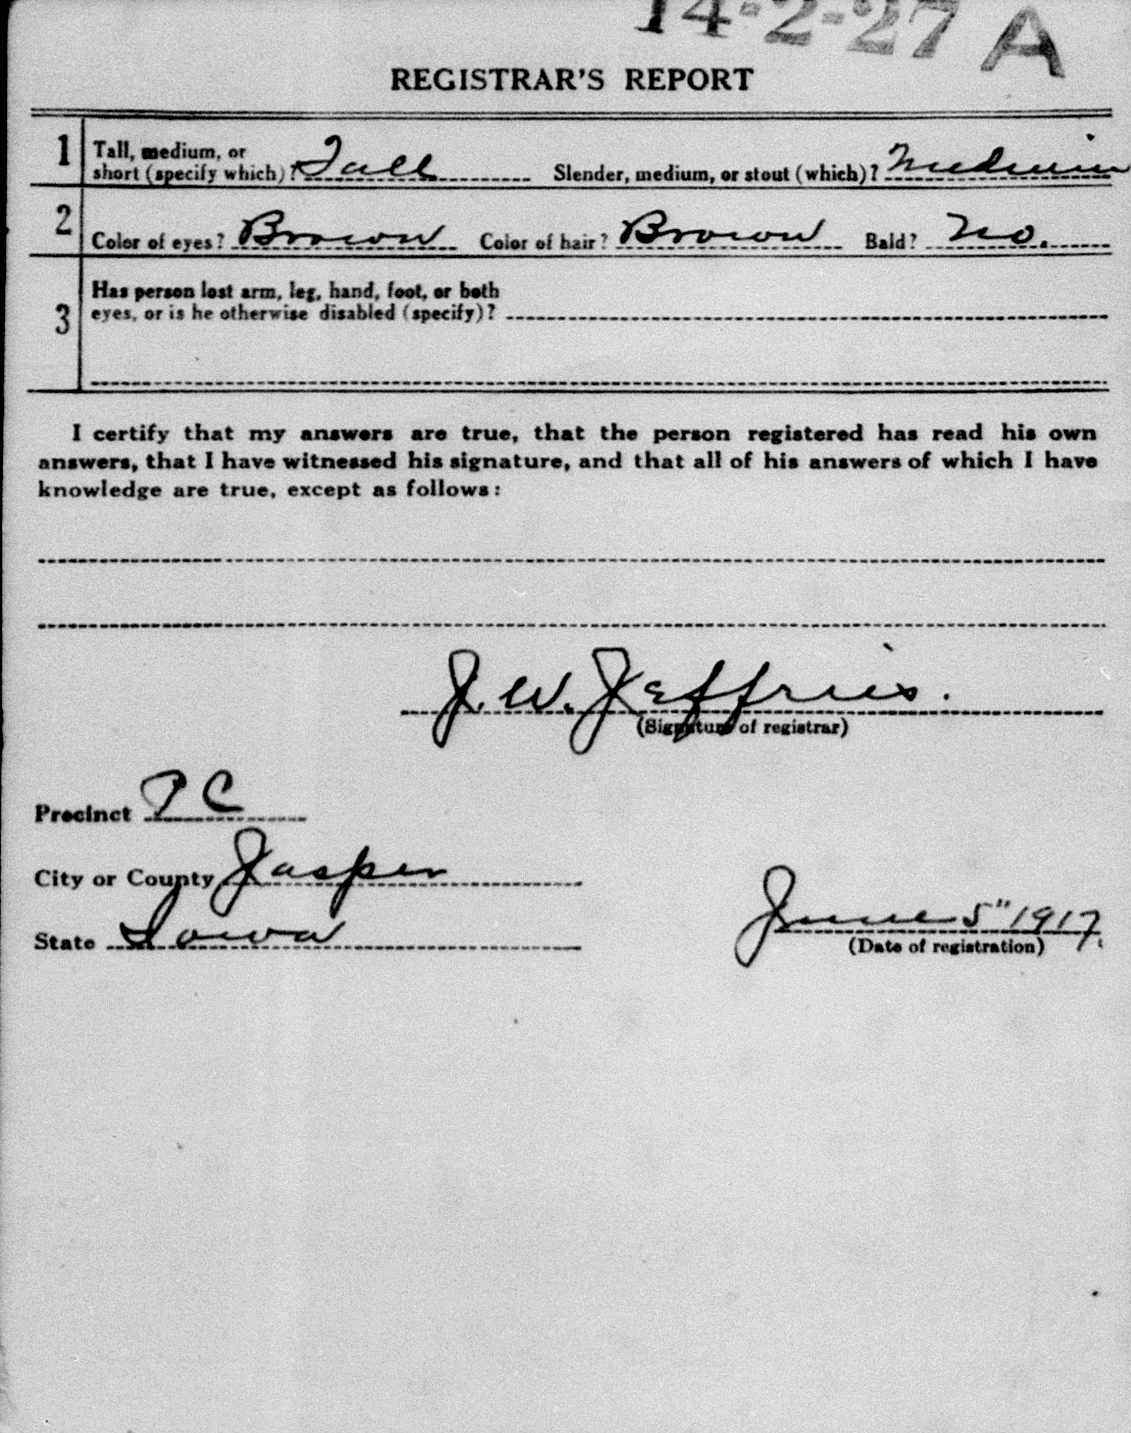 14-2-27 A
REGISTRAR'S REPORT
1 Tall, medium, or
short (specify which)? Tall Slender, medium, or stout (which)? Medium
2 Color of eyes? Brown Color of hair? Brown Bald? No.
3 Has person lost arm, leg, hand, foot, or both
eyes, or is he otherwise disabled (specify)?
I certify that my answers are true, that the person registered has read his own
answers, that I have witnessed his signature, and that all of his answers of which I have
knowledge are true, except as follows:
J. W. Jeffries.
(Signature of registrar)
Precinct P C
City or County Jasper
State Iowa
June 5" 1917.
(Date of registration)